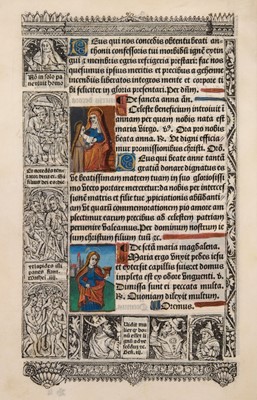 Eus qui nos concedis obtentu beati an
thonii confessoris tui morbidũ ignẽ extin
gui ⁊ membris egris refrigeria prestari: fac nos
quesumus ipsius meritis et precibus a gehenne
incendiis liberatos integros mente et corpore ti
bi feliciter in gloria presentari. Per dñm.
De sancta anna añ.
Celeste beneficium introiuit ĩ
annam per quam nobis nata est
maria virgo. ℣. Ora pro nobis
beata anna. ℟. Ut digni efficia
mur promissionibus christi. Oro.
Eus qui beate anne tantã
gratiã donare dignatus es
ut beatissimam matrem tuam in suo gloriosissi
mo utero portare mereretur: da nobis per interces
sionẽ matris et filie tue ꝓpiciationis abũdanti
am ut quarũ commemorationem pio amore am
plectimur earum precibus ad celestem patriam
peruenire valeamus. Per dominum nostrum ie
sum christum filium tuũ ⁊c.
De scta maria magdalena.
Maria ergo unxit pedes iesu
et extersit capillis suis: et domus
impleta est ex odore unguenti. ℣.
Dimissa sunt ei peccata multa.
℟. Quoniam dilexit multum.
Oremus.
Nõ in solo pa
ne viuit homo